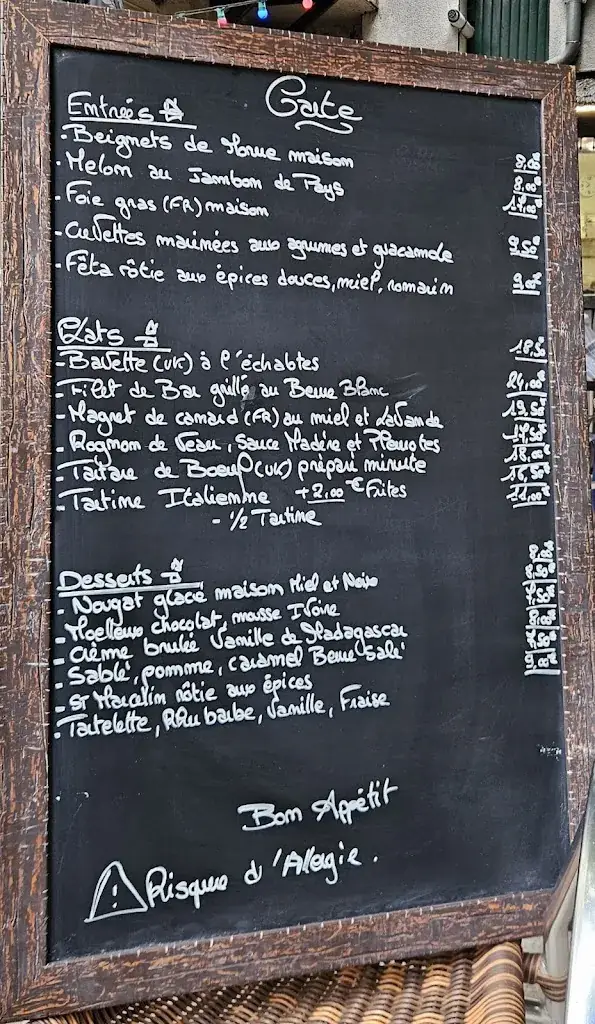 Carte
Entrées
- Beignets de Morue maison 9,00
- Melon au Jambon de Pays 9,00
- Foie gras (FR) maison 14,00
- Crevettes marinées aux agrumes et guacamole 9,50
- Fêta rôtie aux épices douces, miel, romarin
Plats
- Bavette (UK) à l'échalotes 18,50
- Filet de Bar grillé au Beurre Blanc 24,00
- Magret de canard (FR) au miel et Lavande 19,50
- Rognon de Veau, Sauce Madère et Pleurotes
- Tartare de Boeuf (UK) préparé minute 18,00
- Tartine Italienne +2,00€ Frites 16,50
- 1/2 Tartine 11,00
Desserts
- Nougat glacé maison Miel et Noix
- Moelleux chocolat, mousse Ivoire
- Crème brulée Vanille de Madagascar
- Sablé, pomme, caramel Beurre Salé
- St Marcelin rôtie aux épices
- Tartelette, Rhubarbe, Vanille, Fraise
Bon Appétit
! Risque d'Allergie.